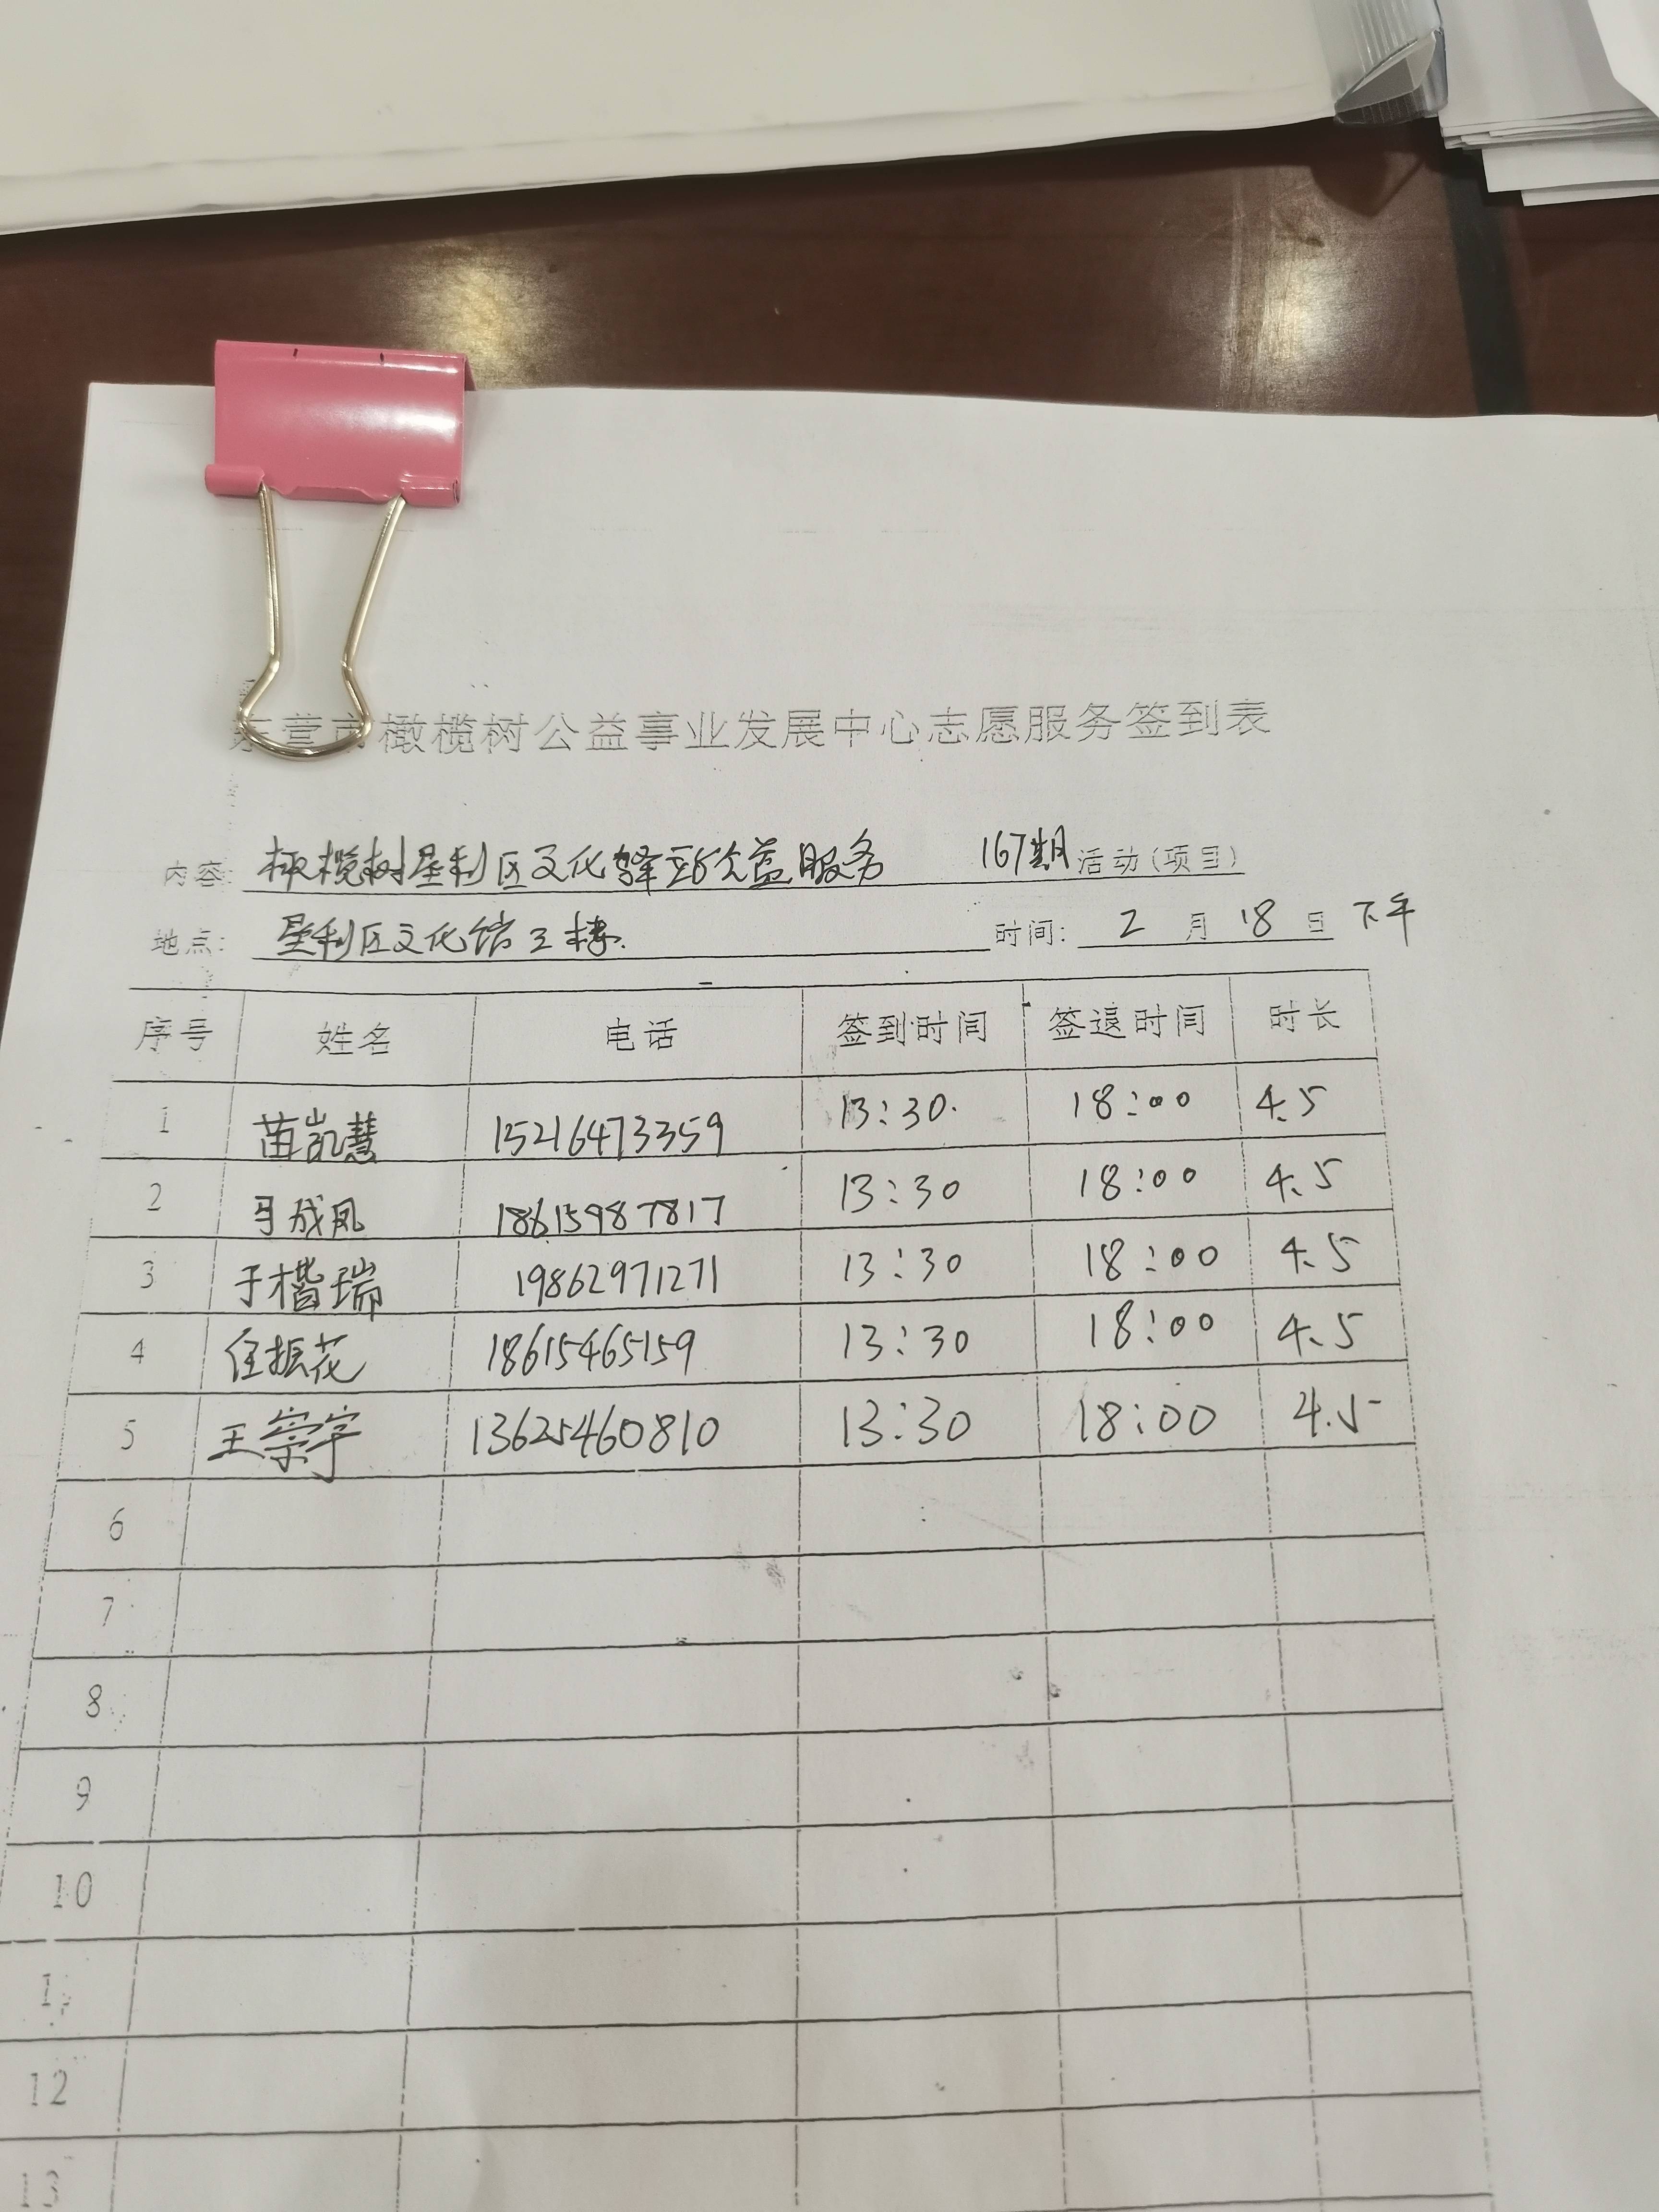 东营市橄榄树公益事业发展中心志愿服务签到表
内容: 橄榄树垦利区文化驿站公益服务 167期 活动(项目)
地点: 垦利区文化馆三楼. 时间: 2 月 18 日 下午
序号 姓名 电话 签到时间 签退时间 时长
1 苗凯慧 15216473359 13:30. 18:00 4.5
2 马成凤 18615987817 13:30 18:00 4.5
3 于楷瑞 19862971271 13:30 18:00 4.5
4 任振花 18615465159 13:30 18:00 4.5
5 王崇宇 13625460810 13:30 18:00 4.5
6
7
8
9
10
12
13